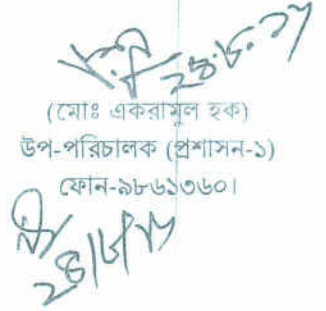 ২৪.৮.১৭
(মোঃ একরামুল হক)
উপ-পরিচালক (প্রশাসন-১)
ফোন-৯৮৬১৩৬০।
২৪/৮/১৭